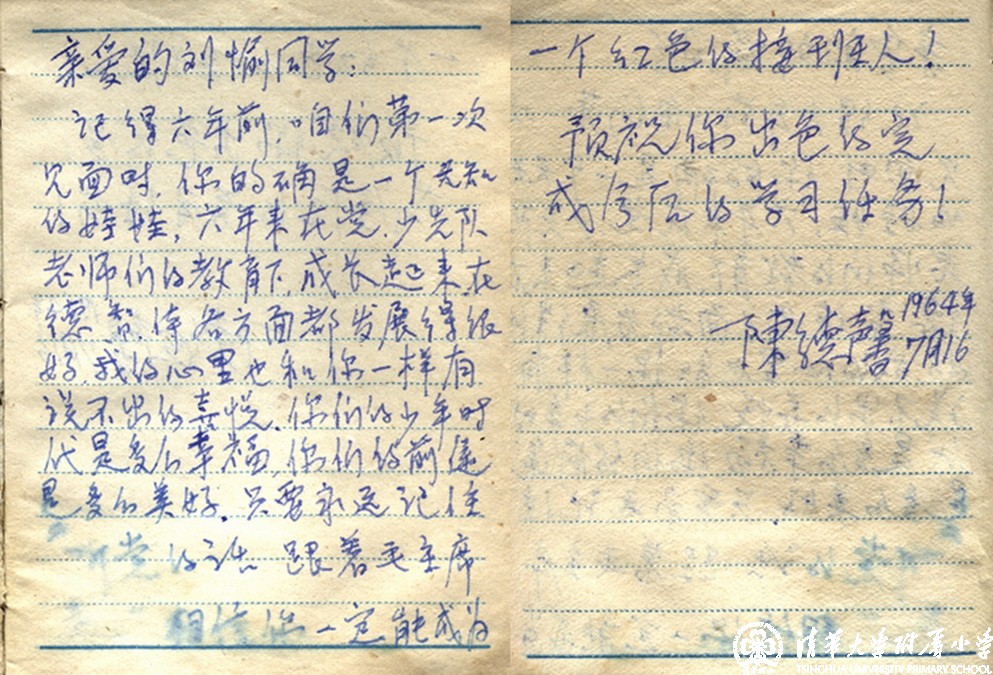 亲爱的刘愉同学：
记得六年前，咱们第一次
见面时，你的确是一个无知
的娃娃，六年来在党、少先队
老师们的教育下，成长起来，在
德、智、体各方面都发展得很
好，我的心里也和你一样有
说不出的喜悦，你们的少年时
代是多么幸福，你们的前途
是多么美好，只要永远记住
听党的话 跟着毛主席
相信你一定能成为
一个红色的接班人！
预祝你出色的完
成今后的学习任务！
陳德馨 1964年
7月16
清华大学附属小学
TSINGHUA UNIVERSITY PRIMARY SCHOOL